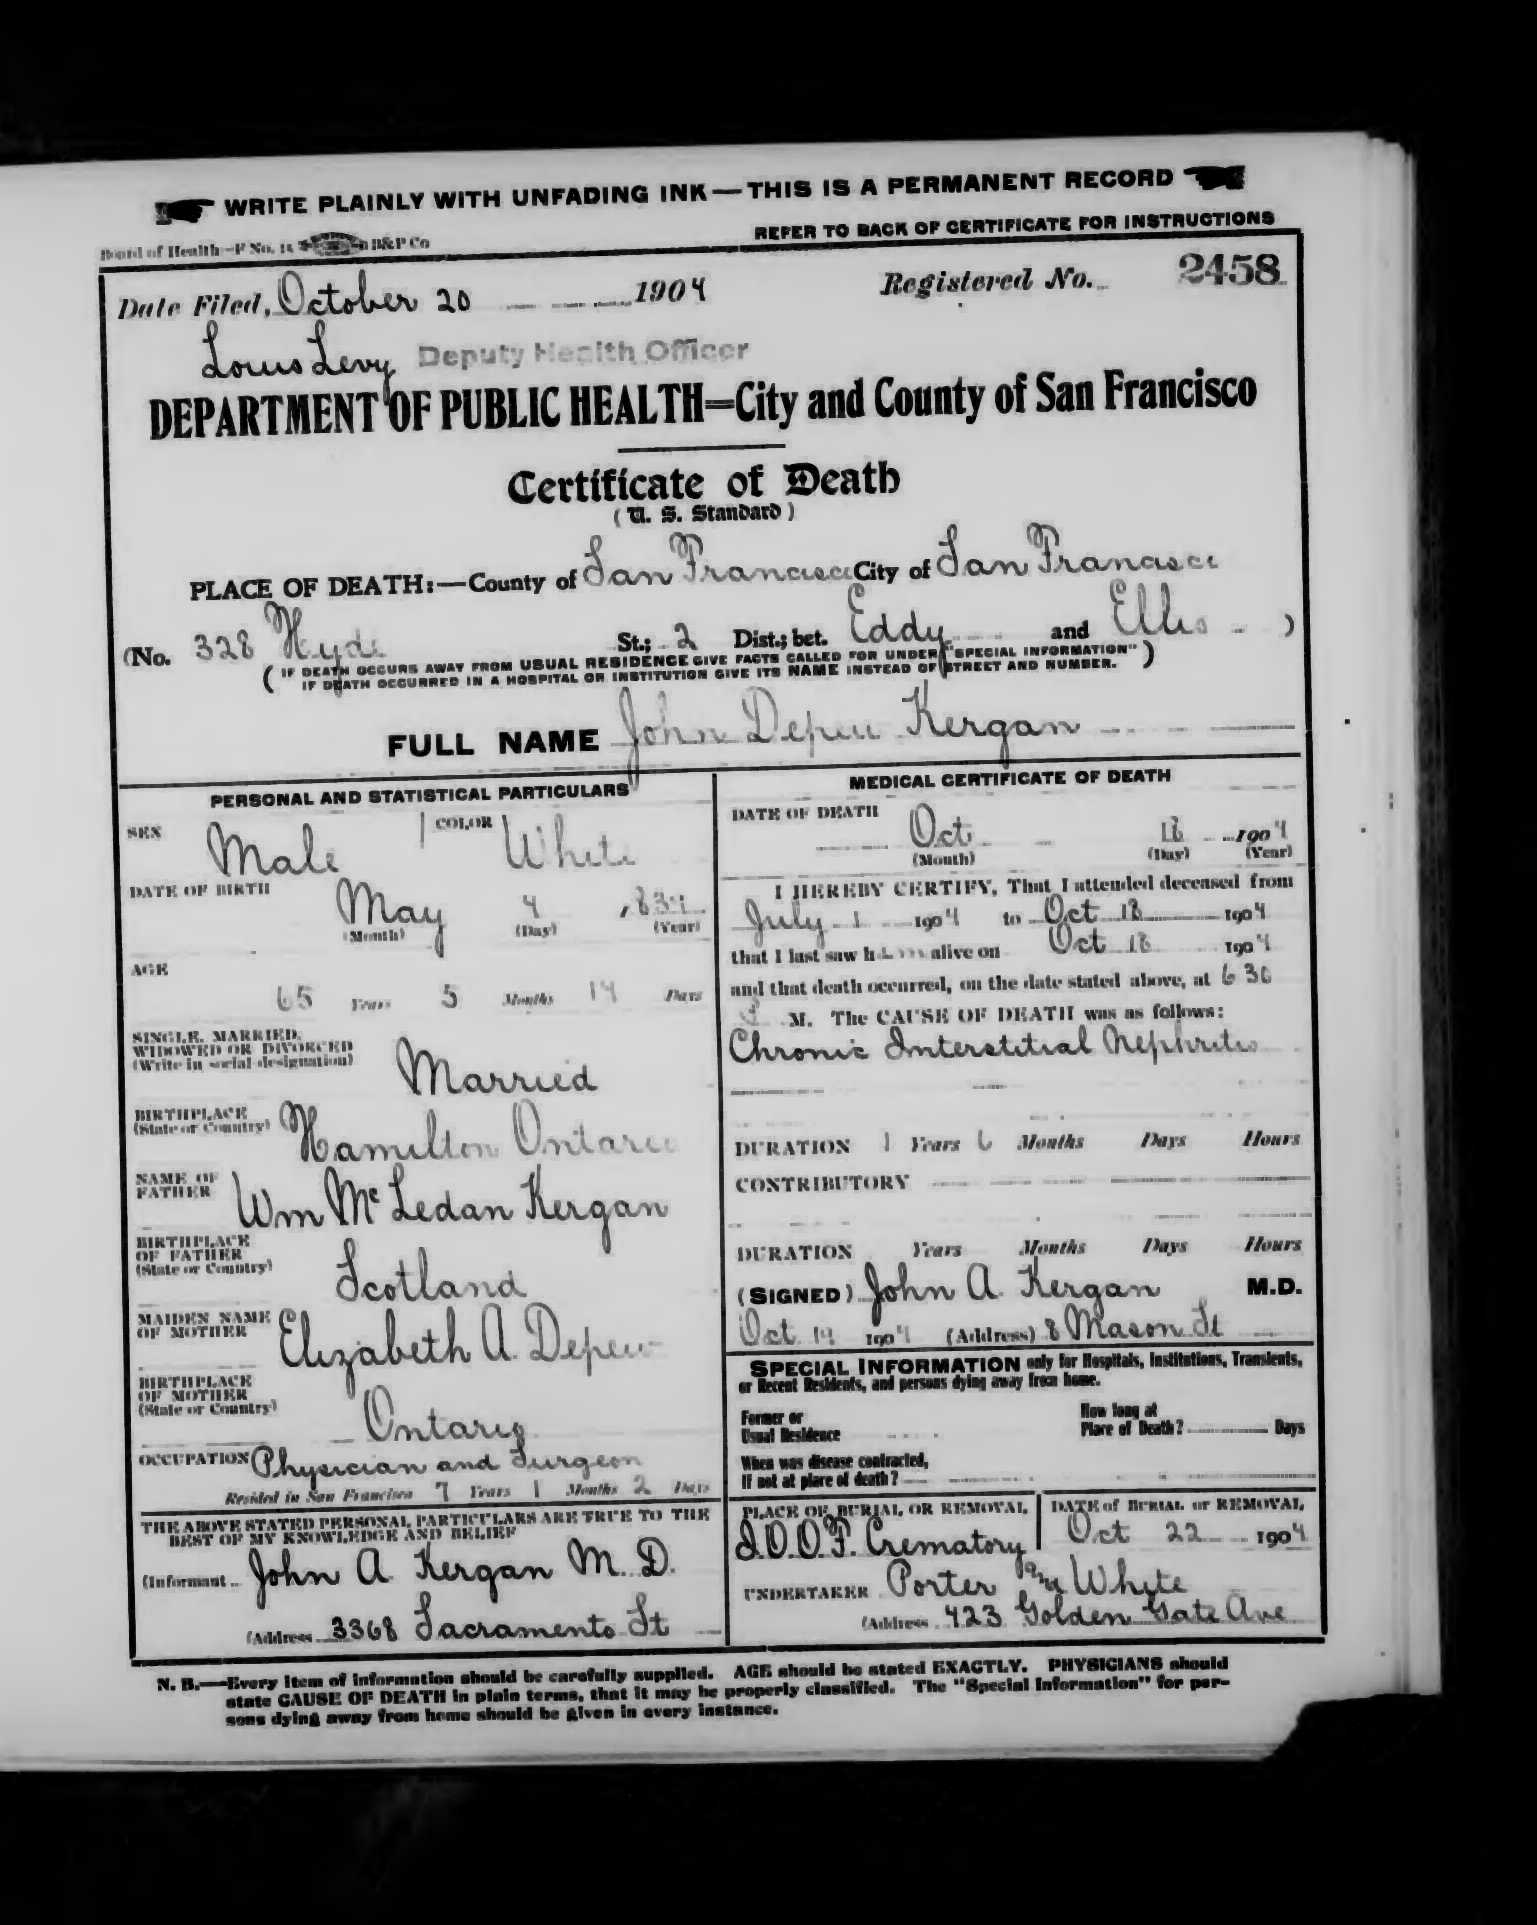 WRITE PLAINLY WITH UNFADING INK — THIS IS A PERMANENT RECORD
Board of Health—F No. 14 B&P Co
REFER TO BACK OF CERTIFICATE FOR INSTRUCTIONS
Date Filed, October 20 1904 Registered No. 2458
Louis Levy Deputy Health Officer
DEPARTMENT OF PUBLIC HEALTH=City and County of San Francisco
Certificate of Death
(U. S. Standard)
PLACE OF DEATH:—County of San Francisco City of San Francisco
(No. 328 Hyde St.; 2 Dist.; bet. Eddy and Ellis )
( IF DEATH OCCURS AWAY FROM USUAL RESIDENCE GIVE FACTS CALLED FOR UNDER "SPECIAL INFORMATION" )
IF DEATH OCCURRED IN A HOSPITAL OR INSTITUTION GIVE ITS NAME INSTEAD OF STREET AND NUMBER.
FULL NAME John Depew Kergan
PERSONAL AND STATISTICAL PARTICULARS
SEX Male COLOR White
DATE OF BIRTH May 4 1839
(Month) (Day) (Year)
AGE
65 Years 5 Months 14 Days
SINGLE, MARRIED,
WIDOWED OR DIVORCED
(Write in social designation) Married
BIRTHPLACE
(State or Country) Hamilton Ontario
NAME OF
FATHER Wm McLedan Kergan
BIRTHPLACE
OF FATHER
(State or Country) Scotland
MAIDEN NAME
OF MOTHER Elizabeth A. Depew
BIRTHPLACE
OF MOTHER
(State or Country) Ontario
OCCUPATION Physician and Surgeon
Resided in San Francisco 7 Years 1 Months 2 Days
THE ABOVE STATED PERSONAL PARTICULARS ARE TRUE TO THE
BEST OF MY KNOWLEDGE AND BELIEF
(Informant John A Kergan M. D.
(Address 3368 Sacramento St
MEDICAL CERTIFICATE OF DEATH
DATE OF DEATH
Oct 18 1904
(Month) (Day) (Year)
I HEREBY CERTIFY, That I attended deceased from
July 1 1904 to Oct 18 1904
that I last saw him alive on Oct 18 1904
and that death occurred, on the date stated above, at 6 30
M. The CAUSE OF DEATH was as follows:
Chronic Interstitial Nephritis
DURATION 1 Years 6 Months Days Hours
CONTRIBUTORY
DURATION Years Months Days Hours
(SIGNED) John A. Kergan M.D.
Oct 19 1904 (Address) 8 Mason St
SPECIAL INFORMATION only for Hospitals, Institutions, Transients,
or Recent Residents, and persons dying away from home.
Former or
Usual Residence
How long at
Place of Death? Days
When was disease contracted,
If not at place of death?
PLACE OF BURIAL OR REMOVAL
I.O.O.F. Crematory
DATE of BURIAL or REMOVAL
Oct 22 1904
UNDERTAKER Porter and White
(Address 423 Golden Gate Ave
N. B.—Every item of information should be carefully supplied. AGE should be stated EXACTLY. PHYSICIANS should
state CAUSE OF DEATH in plain terms, that it may be properly classified. The "Special Information" for per-
sons dying away from home should be given in every instance.